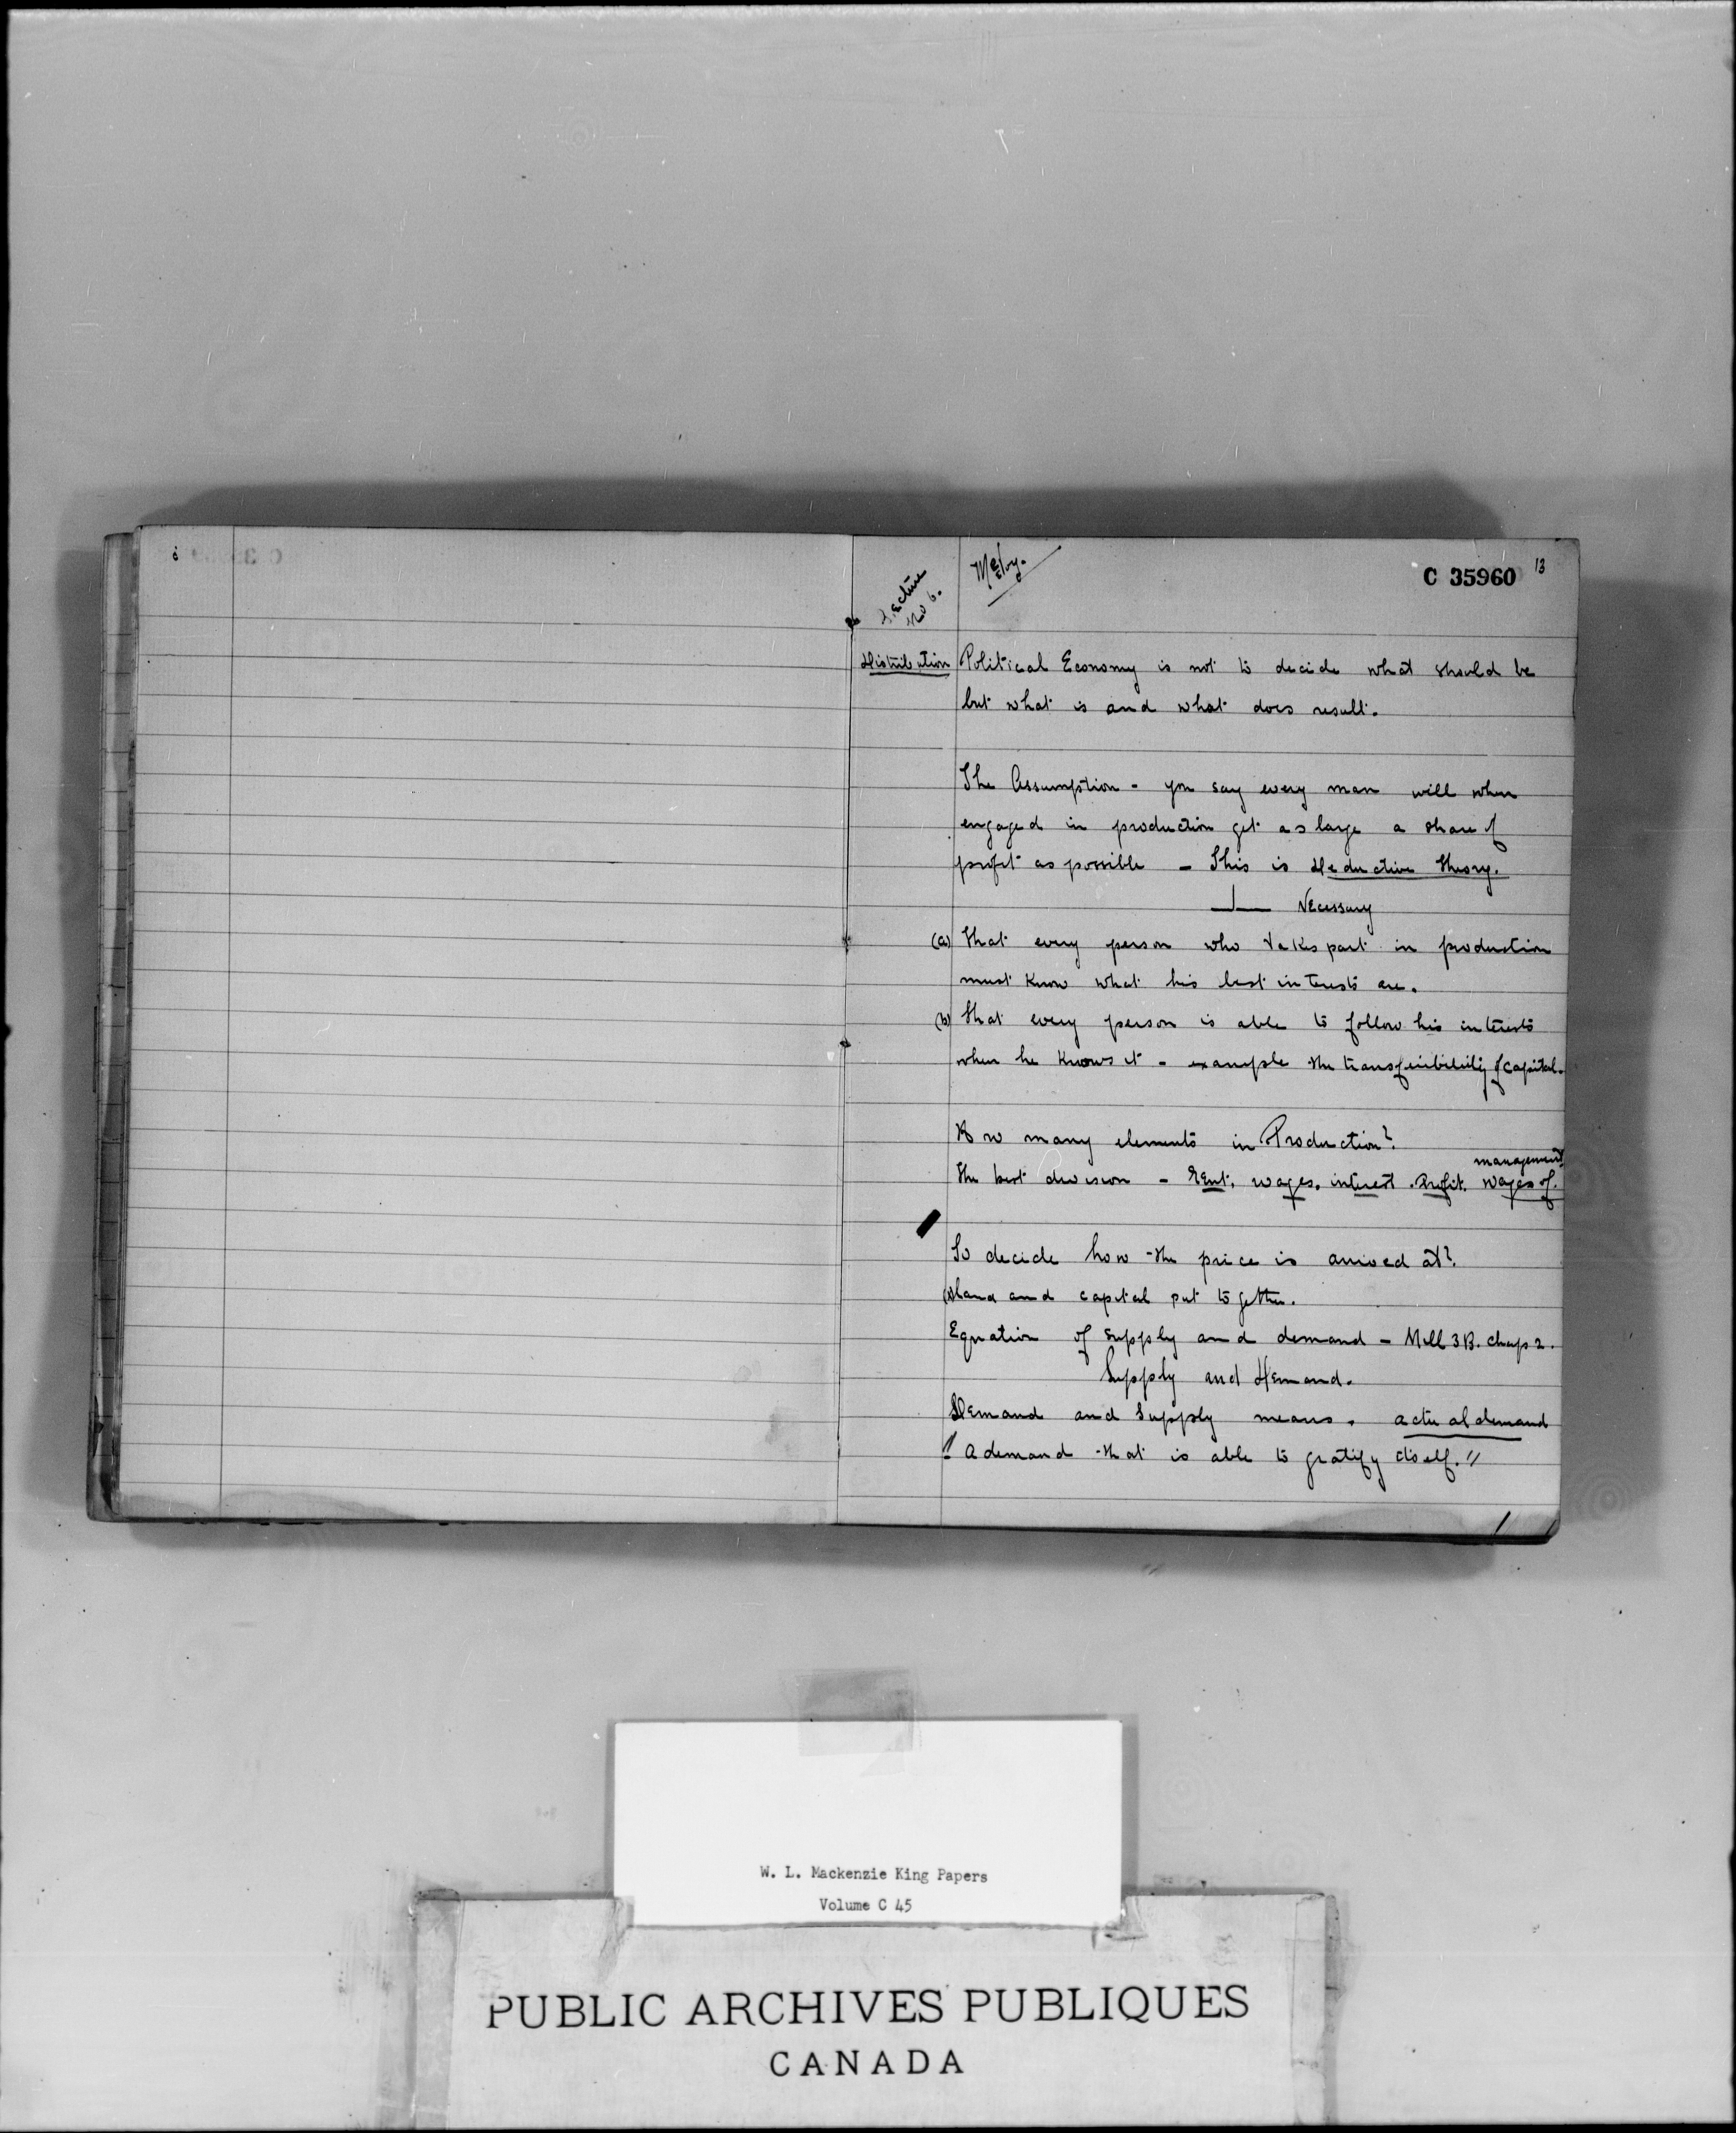 Lecture
No 6.
C 35960
13
Distribution
Political Economy is not to decide what should be
but what is and what does result.
The Assumption - you say every man will when
engaged in production get as large a share of
profit as possible - This is Deductive theory.
Necessary
(a) That every person who takes part in production
must know what his best interests are.
(b) That every person is able to follow his interests
when he knows it - example the transferibility of capital.
How many elements in Production?
management
The best division - Rent, wages, interest. Profit. wages of.
To decide how the price is arrived at?
land and capital put together.
Equation of supply and demand - Mill 3 B. chap 2.
Supply and Demand.
Demand and Supply means. actual demand
"A demand that is able to gratify itself."
W. L. Mackenzie King Papers
Volume C 45
PUBLIC ARCHIVES PUBLIQUES
CANADA